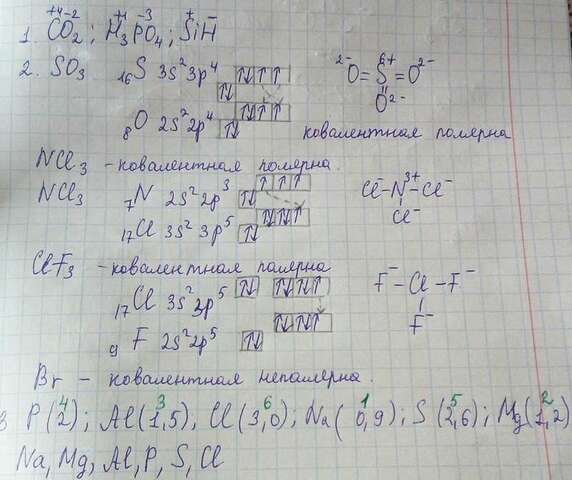 +4 -2 +1 -3 + -
1. CO₂; H₃PO₄; SiH
2. SO₃ ₁₆S 3s²3p⁴ ↑↓ ↑↓ ↑ ↑
²⁻O=S⁶⁺=O²⁻
O²⁻
₈O 2s²2p⁴ ↑↓ ↑↓ ↑ ↑ ковалентная полярна
NCl₃ - ковалентная полярна.
NCl₃ ₇N 2s²2p³ ↑↓ ↑ ↑ ↑
Cl⁻-N³⁺-Cl⁻
Cl⁻
₁₇Cl 3s²3p⁵ ↑↓ ↑↓ ↑↓ ↑
ClF₃ - ковалентная полярна
₁₇Cl 3s²3p⁵ ↑↓ ↑↓ ↑↓ ↑
F⁻-Cl-F⁻
F⁻
₉F 2s²2p⁵ ↑↓ ↑↓ ↑↓ ↑
Br - ковалентная неполярна.
4 3 6 1 5 2
3 P(2); Al(1,5), Cl(3,0); Na(0,9); S(2,6); Mg(1,2)
Na, Mg, Al, P, S, Cl